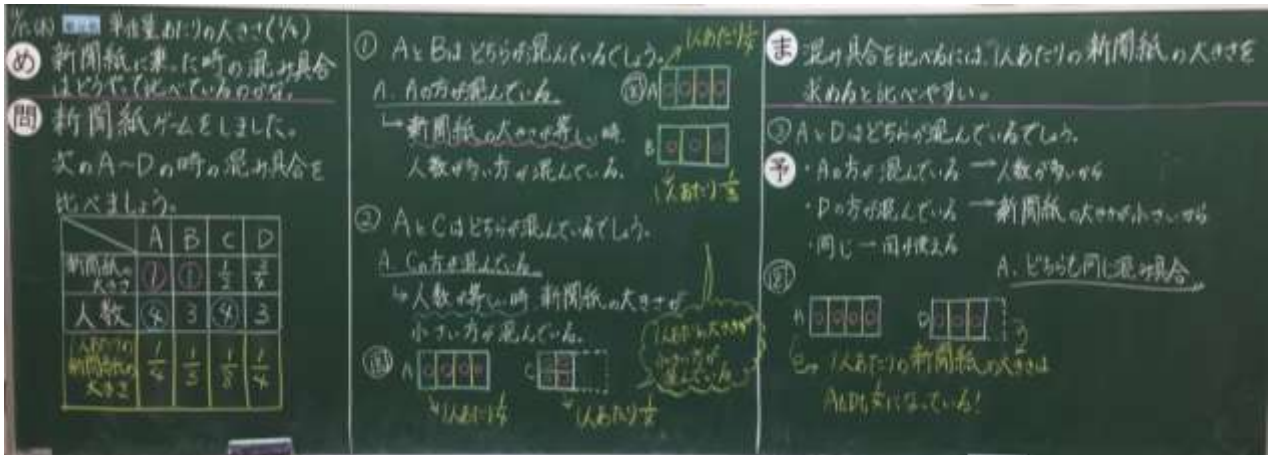 単位量あたりの大きさ(1/8)
め 新聞紙に乗った時の混み具合
はどうやって比べているのかな。
問 新聞紙ゲームをしました。
次のA~Dの時の混み具合を
比べましょう。
A B C D
新聞紙の大きさ 1 1 1/2 3/4
人数 4 3 4 3
1人あたりの新聞紙の大きさ 1/4 1/3 1/8 1/4
① AとBはどちらが混んでいるでしょう。
A. Aの方が混んでいる。
↳新聞紙の大きさが等しい時
人数が多い方が混んでいる。
図 A
1人あたり1/4
B
1人あたり1/3
② AとCはどちらが混んでいるでしょう。
A. Cの方が混んでいる。
↳人数が等しい時 新聞紙の大きさが
小さい方が混んでいる。
図 A C
1人あたり1/4
1人あたり1/8
1人あたりの大きさが
小さい方が
混んでいる
ま 混み具合を比べるには、1人あたりの新聞紙の大きさを
求めると比べやすい。
③ AとDはどちらが混んでいるでしょう。
予 ・Aの方が混んでいる → 人数が多いから
・Dの方が混んでいる → 新聞紙の大きさが小さいから
・同じ → 図が使える
A. どちらも同じ混み具合
図
A D
1人あたりの新聞紙の大きさは
AもDも1/4になっている!